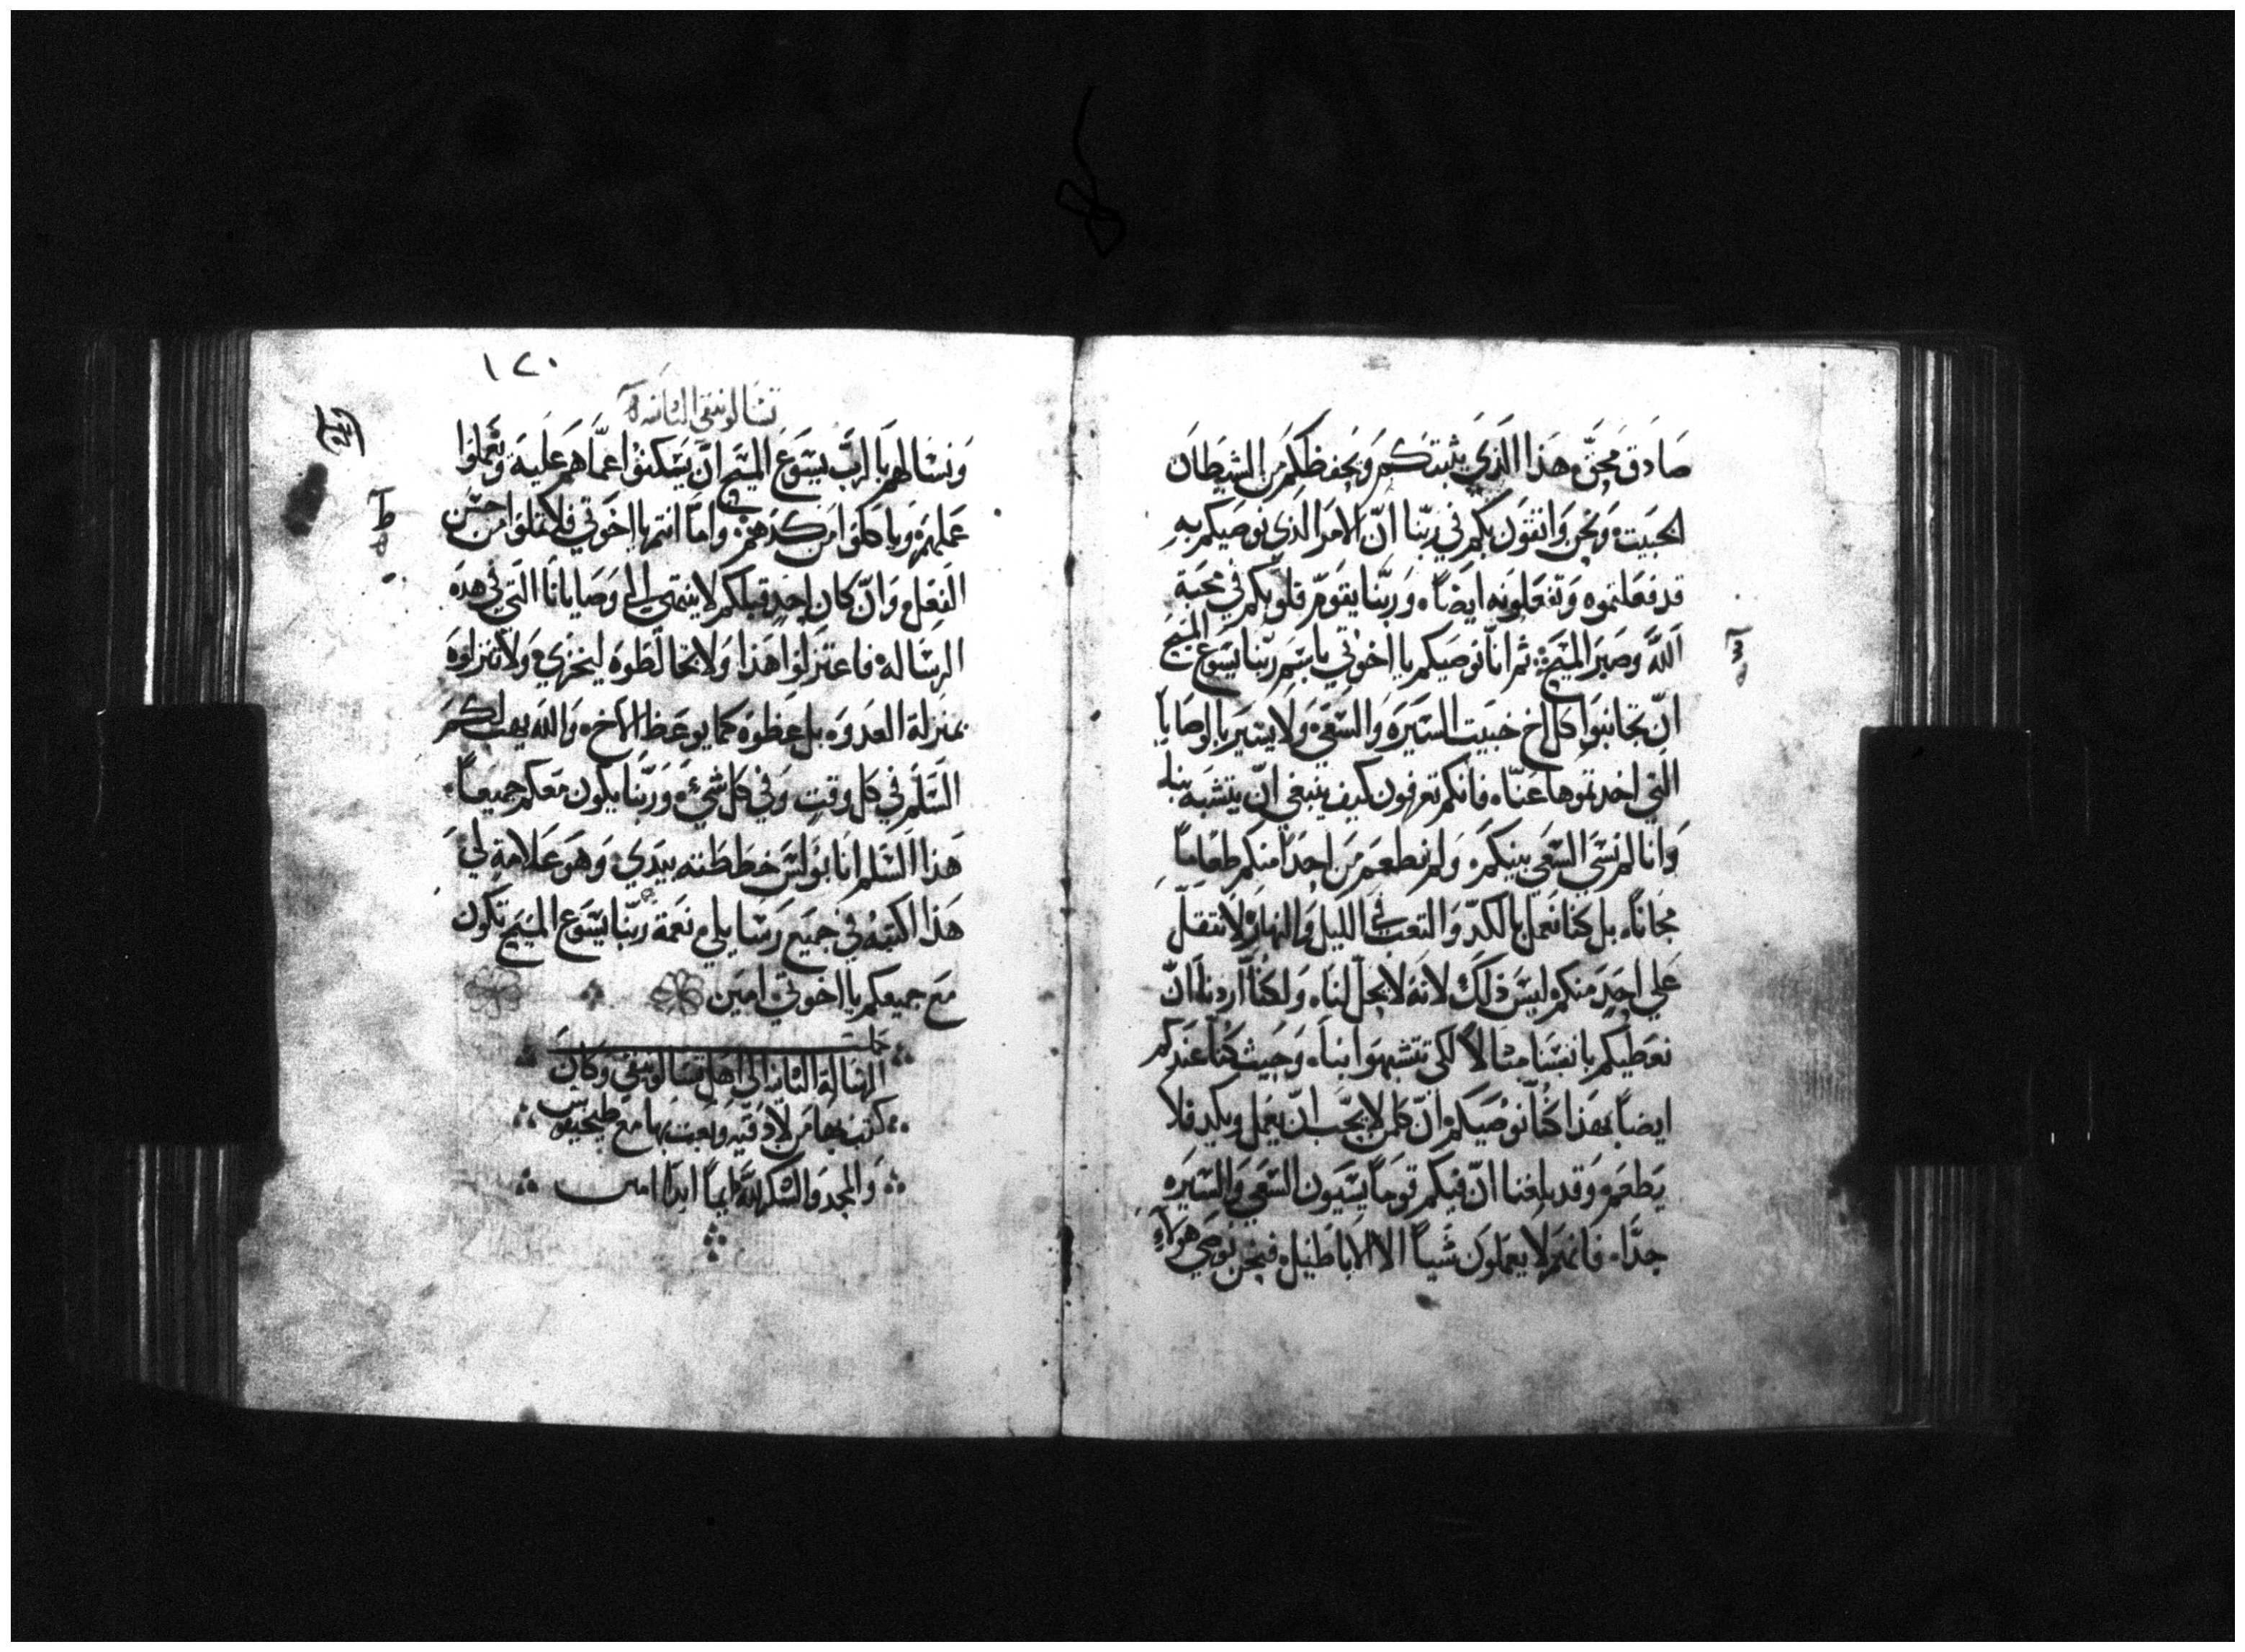 صادق محق هذا الذي يثبتكم ويحفظكم من الشيطان
الخبيث ونحن واثقون بكم في ربنا ان الامر الذي نوصيكم به
قد فعلتموه وتفعلونه ايضاً وربنا يقوم قلوبكم في محبة
الله وصبر المسيح ثم انا نوصيكم يا اخوتي باسم ربنا يسوع المسيح
ان تجانبوا كل اخ خبيث السيرة والسعي ولا يسير بالوصايا
التي اخذتموها عنا فانكم تعرفون كيف ينبغي ان يتشبه بنا
وانا لم نسي السعي بينكم ولم نطعم من احداً منكم طعاماً
مجاناً بل كنا نعمل بالكد والتعب في الليل والنهار لا نثقل
علي احد منكم ليس ذلك لانه لا يحل لنا ولكنا اردنا ان
نعطيكم بانفسنا مثالاً لكي تتشبهوا بنا وحيث كنا عندكم
ايضاً بهذا كنا نوصيكم ان كلمن لا يحب ان يعمل ويكد فلا
يطعم وقد بلغنا ان فيكم قوماً يسيون السعي والسيره
جداً فانهم لا يعملون شياً الا الاباطيل فنحن نوصي هولاء
١٢٠
تسالونيقي الثانية
ونسالهم بالرب يسوع المسيح ان يسكنوا عما هم عليه ويعملوا
عملهم وياكلوا من كدهم واما انتم يا اخوتي فلا تملوا من حسن
الفعل وان كان احد قبلكم لا ينتهي الي وصايانا التي في هذه
الرساله فاعتزلوا هذا ولا تخالطوه ليخزي ولا تنزلوه
بمنزلة العدو بل عظوه كما يوعظ الاخ والله يهب لكم
السلم في كل وقت وفي كل شيء وربنا يكون معكم جميعاً
هذا السلم انا بولس خططته بيدي وهو علامة لي
هذا اكتبه في جميع رسايلي نعمة ربنا يسوع المسيح تكون
مع جميعكم يا اخوتي امين
الرسالة الثانيه الى اهل تسالونيقي وكان
كتب بها من لادقيه وبعث بها مع طيخيقوس
والمجد والشكر لله دايماً ابداً امين